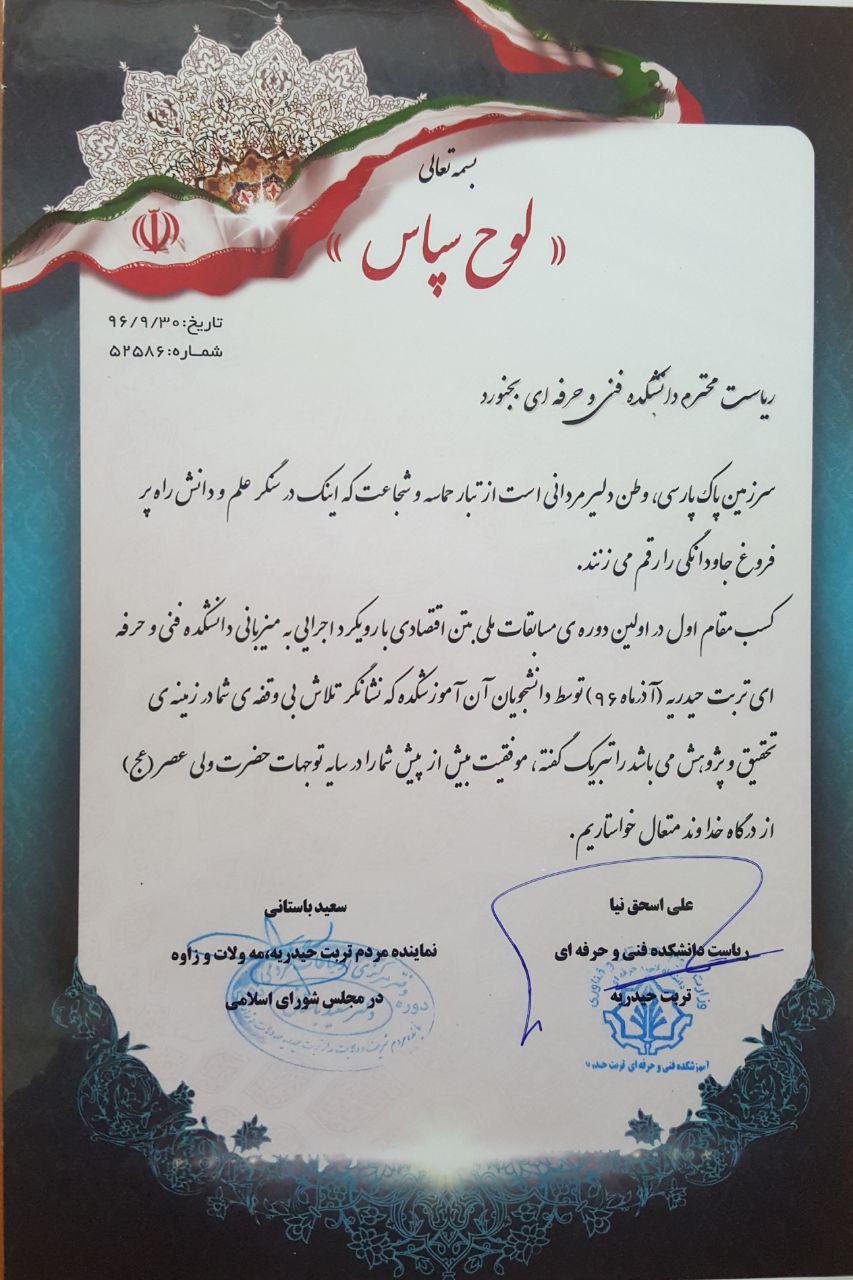 بسمه تعالی
« لوح سپاس »
تاریخ: ۹۶/۹/۳۰
شماره: ۵۲۵۸۶
ریاست محترم دانشکده فنی و حرفه ای بجنورد
سرزمین پاک پارسی، وطن دلیرمردانی است از تبار حماسه و شجاعت که اینک در سنگر علم و دانش راه پر
فروغ جاودانگی را رقم می زنند.
کسب مقام اول در اولین دوره ی مسابقات ملی بتن اقتصادی با رویکرد اجرایی به میزبانی دانشکده فنی و حرفه
ای تربت حیدریه (آذرماه ۹۶) توسط دانشجویان آن آموزشکده که نشانگر تلاش بی وقفه ی شما در زمینه ی
تحقیق و پژوهش می باشد را تبریک گفته، موفقیت بیش از پیش شما را در سایه توجهات حضرت ولی عصر (عج)
از درگاه خداوند متعال خواستاریم.
علی اسحق نیا
ریاست دانشکده فنی و حرفه ای
تربت حیدریه
سعید باستانی
نماینده مردم تربت حیدریه،مه ولات و زاوه
در مجلس شورای اسلامی
آموزشکده فنی و حرفه ای تربت حیدریه